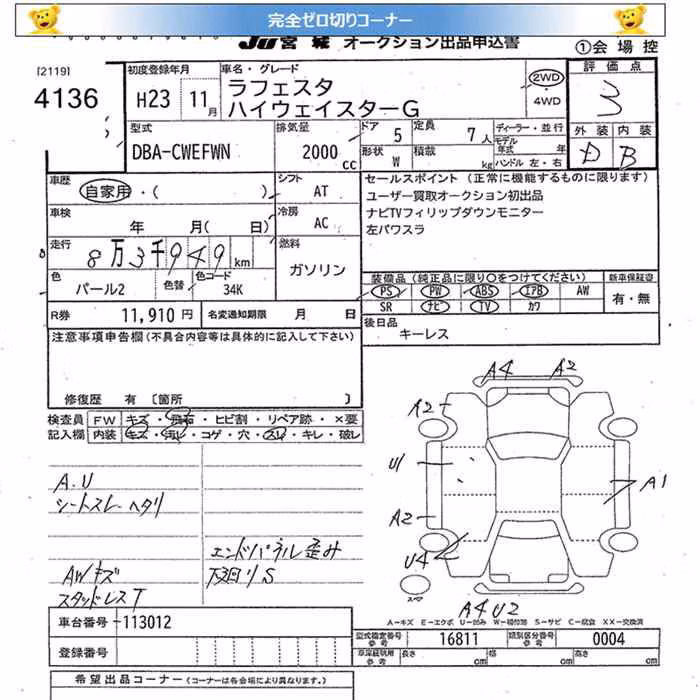 完全ゼロ切りコーナー
JU宮城 オークション出品申込書
①会場控
[2119]
4136
初度登録年月
H23 11月
車名・グレード
ラフェスタ
ハイウェイスターG
2WD
・
4WD
評価点
3
外装 内装
D B
型式
DBA-CWEFWN
排気量
2000 cc
ドア 5
定員 7人
形状 W
積載 kg
ディーラー・並行
モデル年式 年
ハンドル 左・右
車歴
自家用・( )
シフト
AT
セールスポイント (正常に機能するものに限ります)
ユーザー買取オークション初出品
ナビTVフィリップダウンモニター
左パワスラ
車検
年 月(日)
冷房
AC
走行
8万3千949km
燃料
ガソリン
色
パール2
色替
色コード
34K
装備品 (純正品に限り○をつけてください)
新車保証書
PS PW ABS エアB AW
SR ナビ TV カワ
有・無
R券 11,910 円
名変通知期限 月 日
後日品
キーレス
注意事項申告欄(不具合内容等は具体的に記入して下さい)
修復歴 有 [箇所 ]
検査員
記入欄
FW キズ・飛石・ヒビ割・リペア跡・×要
内装 キズ・汚レ・コゲ・穴・スリ・キレ・破レ
A.U
シートスレ・ヘタリ
エンドパネル歪み
下回りS
AWキズ
スタッドレスT
A4 A2
A2
U1
A1
A2
U4
スペア
A4 U2
A-キズ E-エクボ U-凹み W-補修跡 S-サビ C-腐食 XX-交換済
車台番号 -113012
登録番号
型式指定番号
参考
16811
類別区分番号
参考
0004
車庫証明用
参考
長さ cm
幅 cm
高さ cm
希望出品コーナー (コーナーは各会場により異なります。)